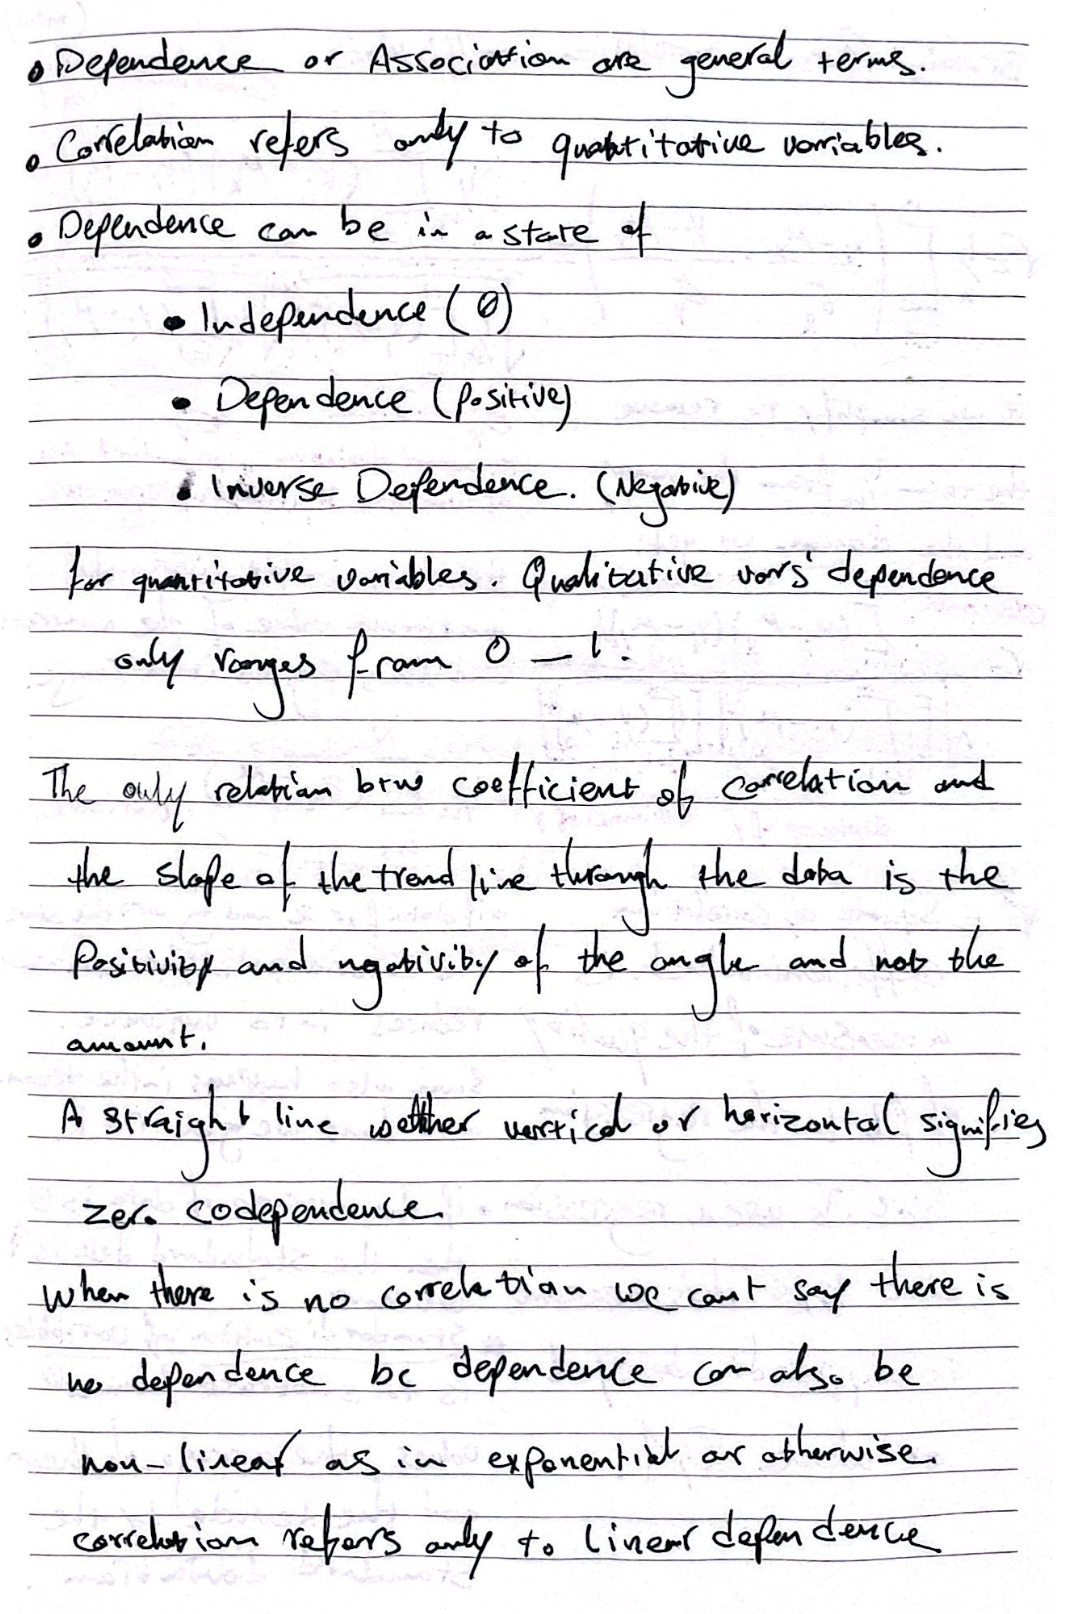 • Dependence or Association are general terms.
• Correlation refers only to quantitative variables.
• Dependence can be in a state of
• Independence (0)
• Dependence (positive)
• Inverse Dependence. (Negative)
for quantitative variables. Qualitative vars' dependence
only ranges from 0 – 1.
The only relation btw coefficient of correlation and
the slope of the trend line through the data is the
Positivity and ngativity of the angle and not the
amount.
A straight line wether vertical or horizontal signifies
zero codependence.
When there is no correlation we can't say there is
no dependence bc dependence can also be
non-linear as in exponential or otherwise.
correlation refers only to linear dependence